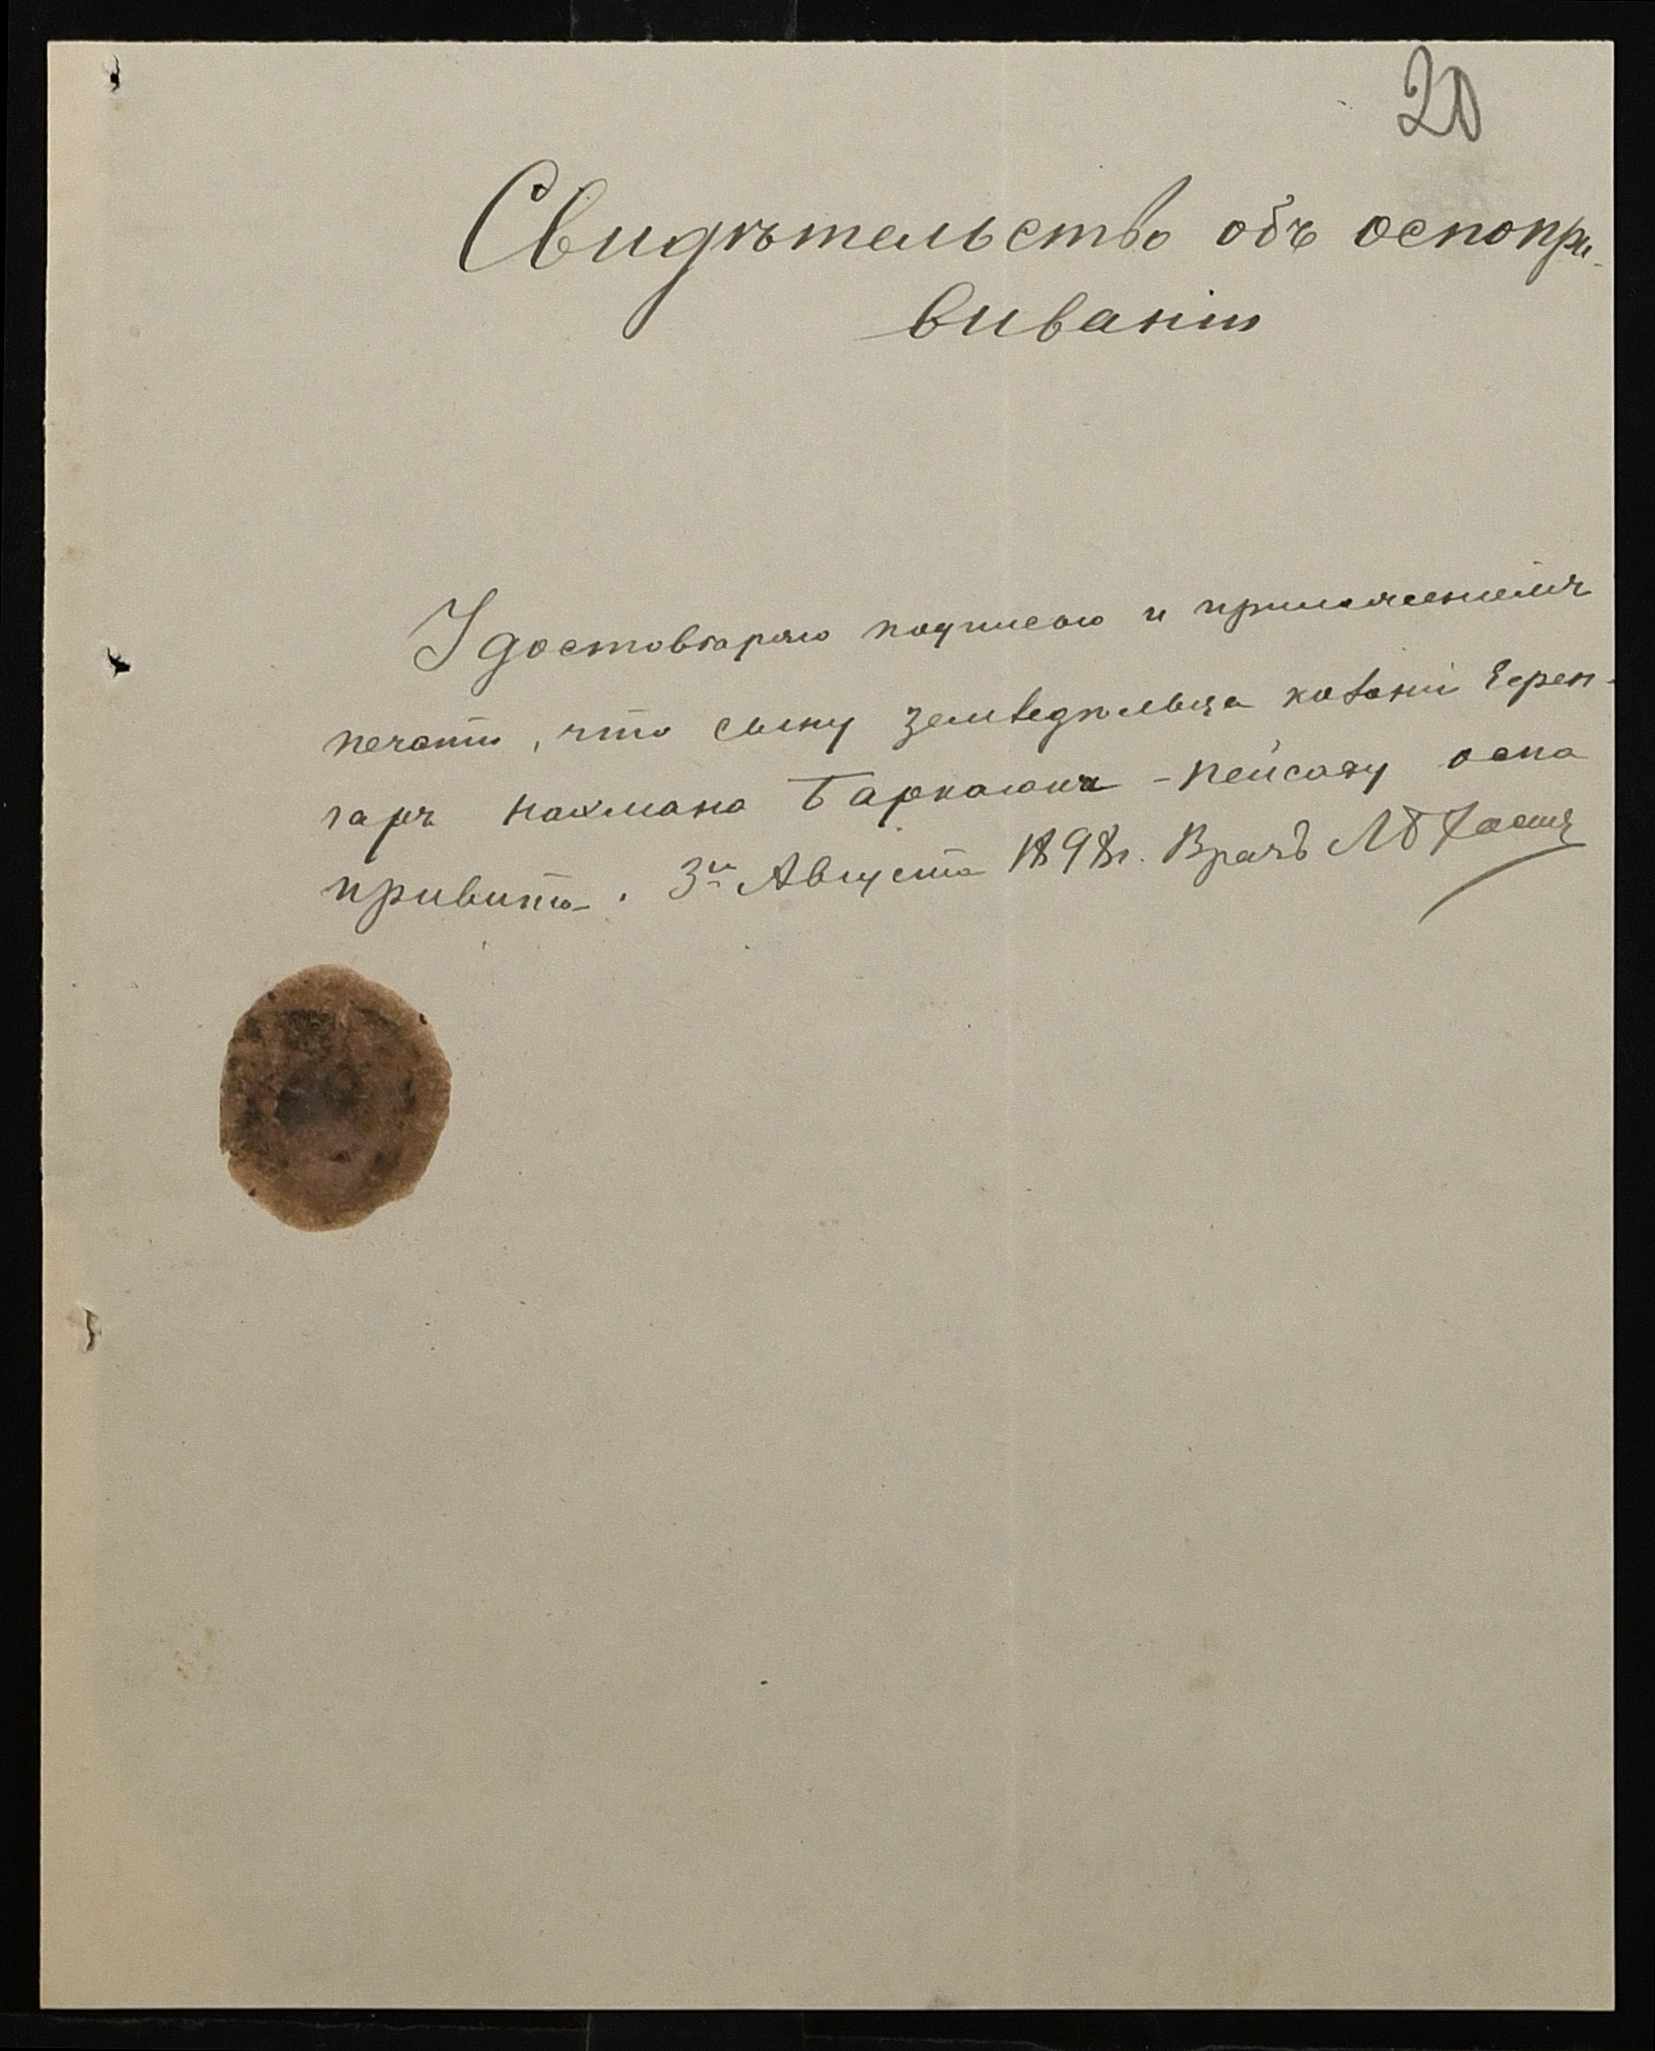 20
Свидѣтельство объ оспопри-
виванiи
Удостовѣряю подписью и приложенiемъ
печати, что сыну земледѣльца колонiи Ефен-
гаръ Нахмана Баркагана - Пейсаху оспа
привита. 3го Августа 1898 г. Врачъ